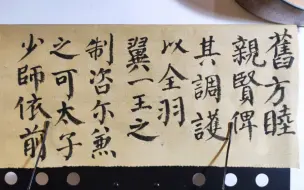 舊方睦
親賢俾
其調護
以全羽
翼一王之
制咨尔兼
之可太子
少師依前